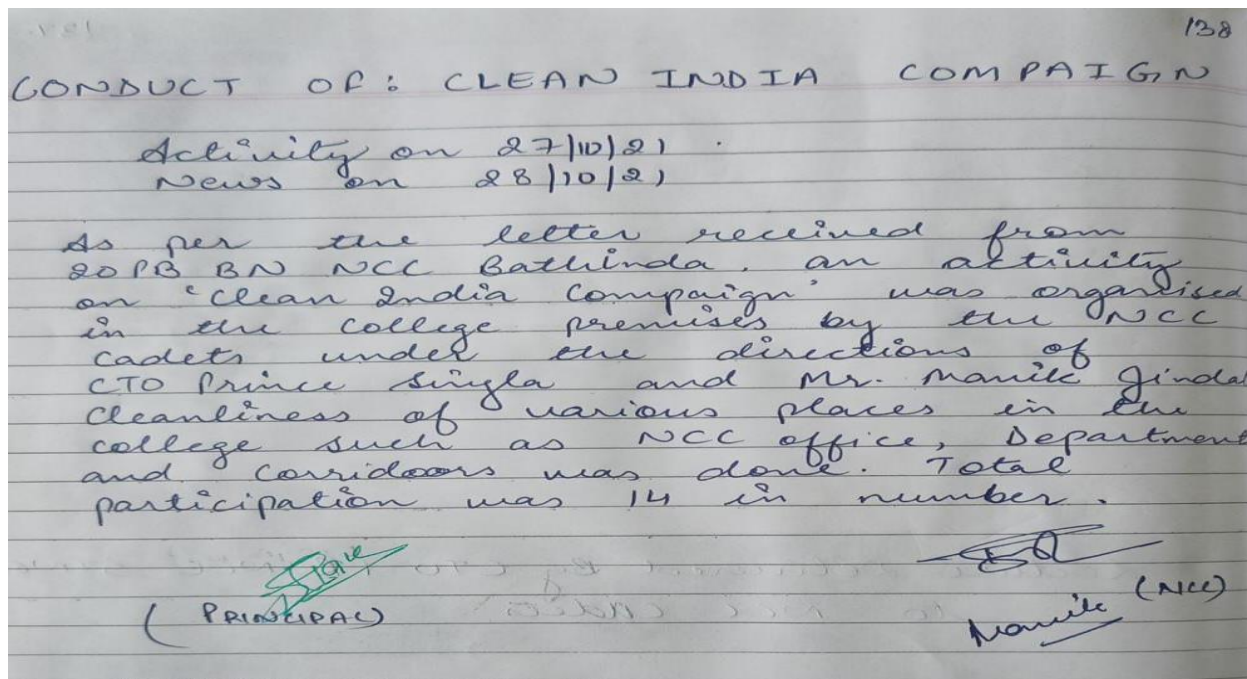 138
CONDUCT OF : CLEAN INDIA COMPAIGN
Activity on 27/10/21.
News on 28/10/21
As per the letter received from
20 PB BN NCC Bathinda, an activity
on 'Clean India Compaign' was organised
in the college premises by the NCC
cadets under the directions of
CTO Prince Singla and Mr. Manik Jindal
Cleanliness of various places in the
college such as NCC office, Department
and corridoors was done. Total
participation was 14 in number.
(PRINCIPAL)
(NCC)
Manik